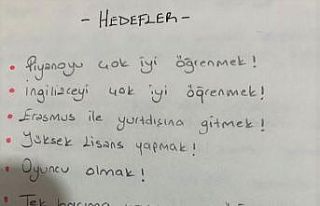 - HEDEFLER -
• Piyanoyu çok iyi öğrenmek!
• İngilizceyi çok iyi öğrenmek!
• Erasmus ile yurtdışına gitmek!
• Yüksek Lisans yapmak!
• Oyuncu olmak!
• Tek başıma